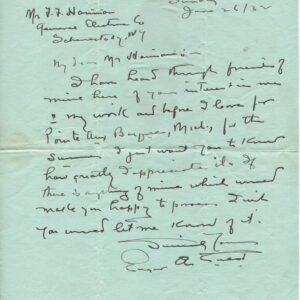 Sunday
June 26/32
Mr F. F. Harrison
General Electric Co
Schenectady, NY
My dear Mr Harrison:
I have heard through friends of
mine here of your interest in me
& my work and before I leave for
Pointe Aux Barques, Mich, for the
Summer I just want you to know
how greatly I appreciate it. If
there is anything of mine which would
make you happy to possess I wish
you would let me know of it.
Sincerely Yours
Edgar A. Guest